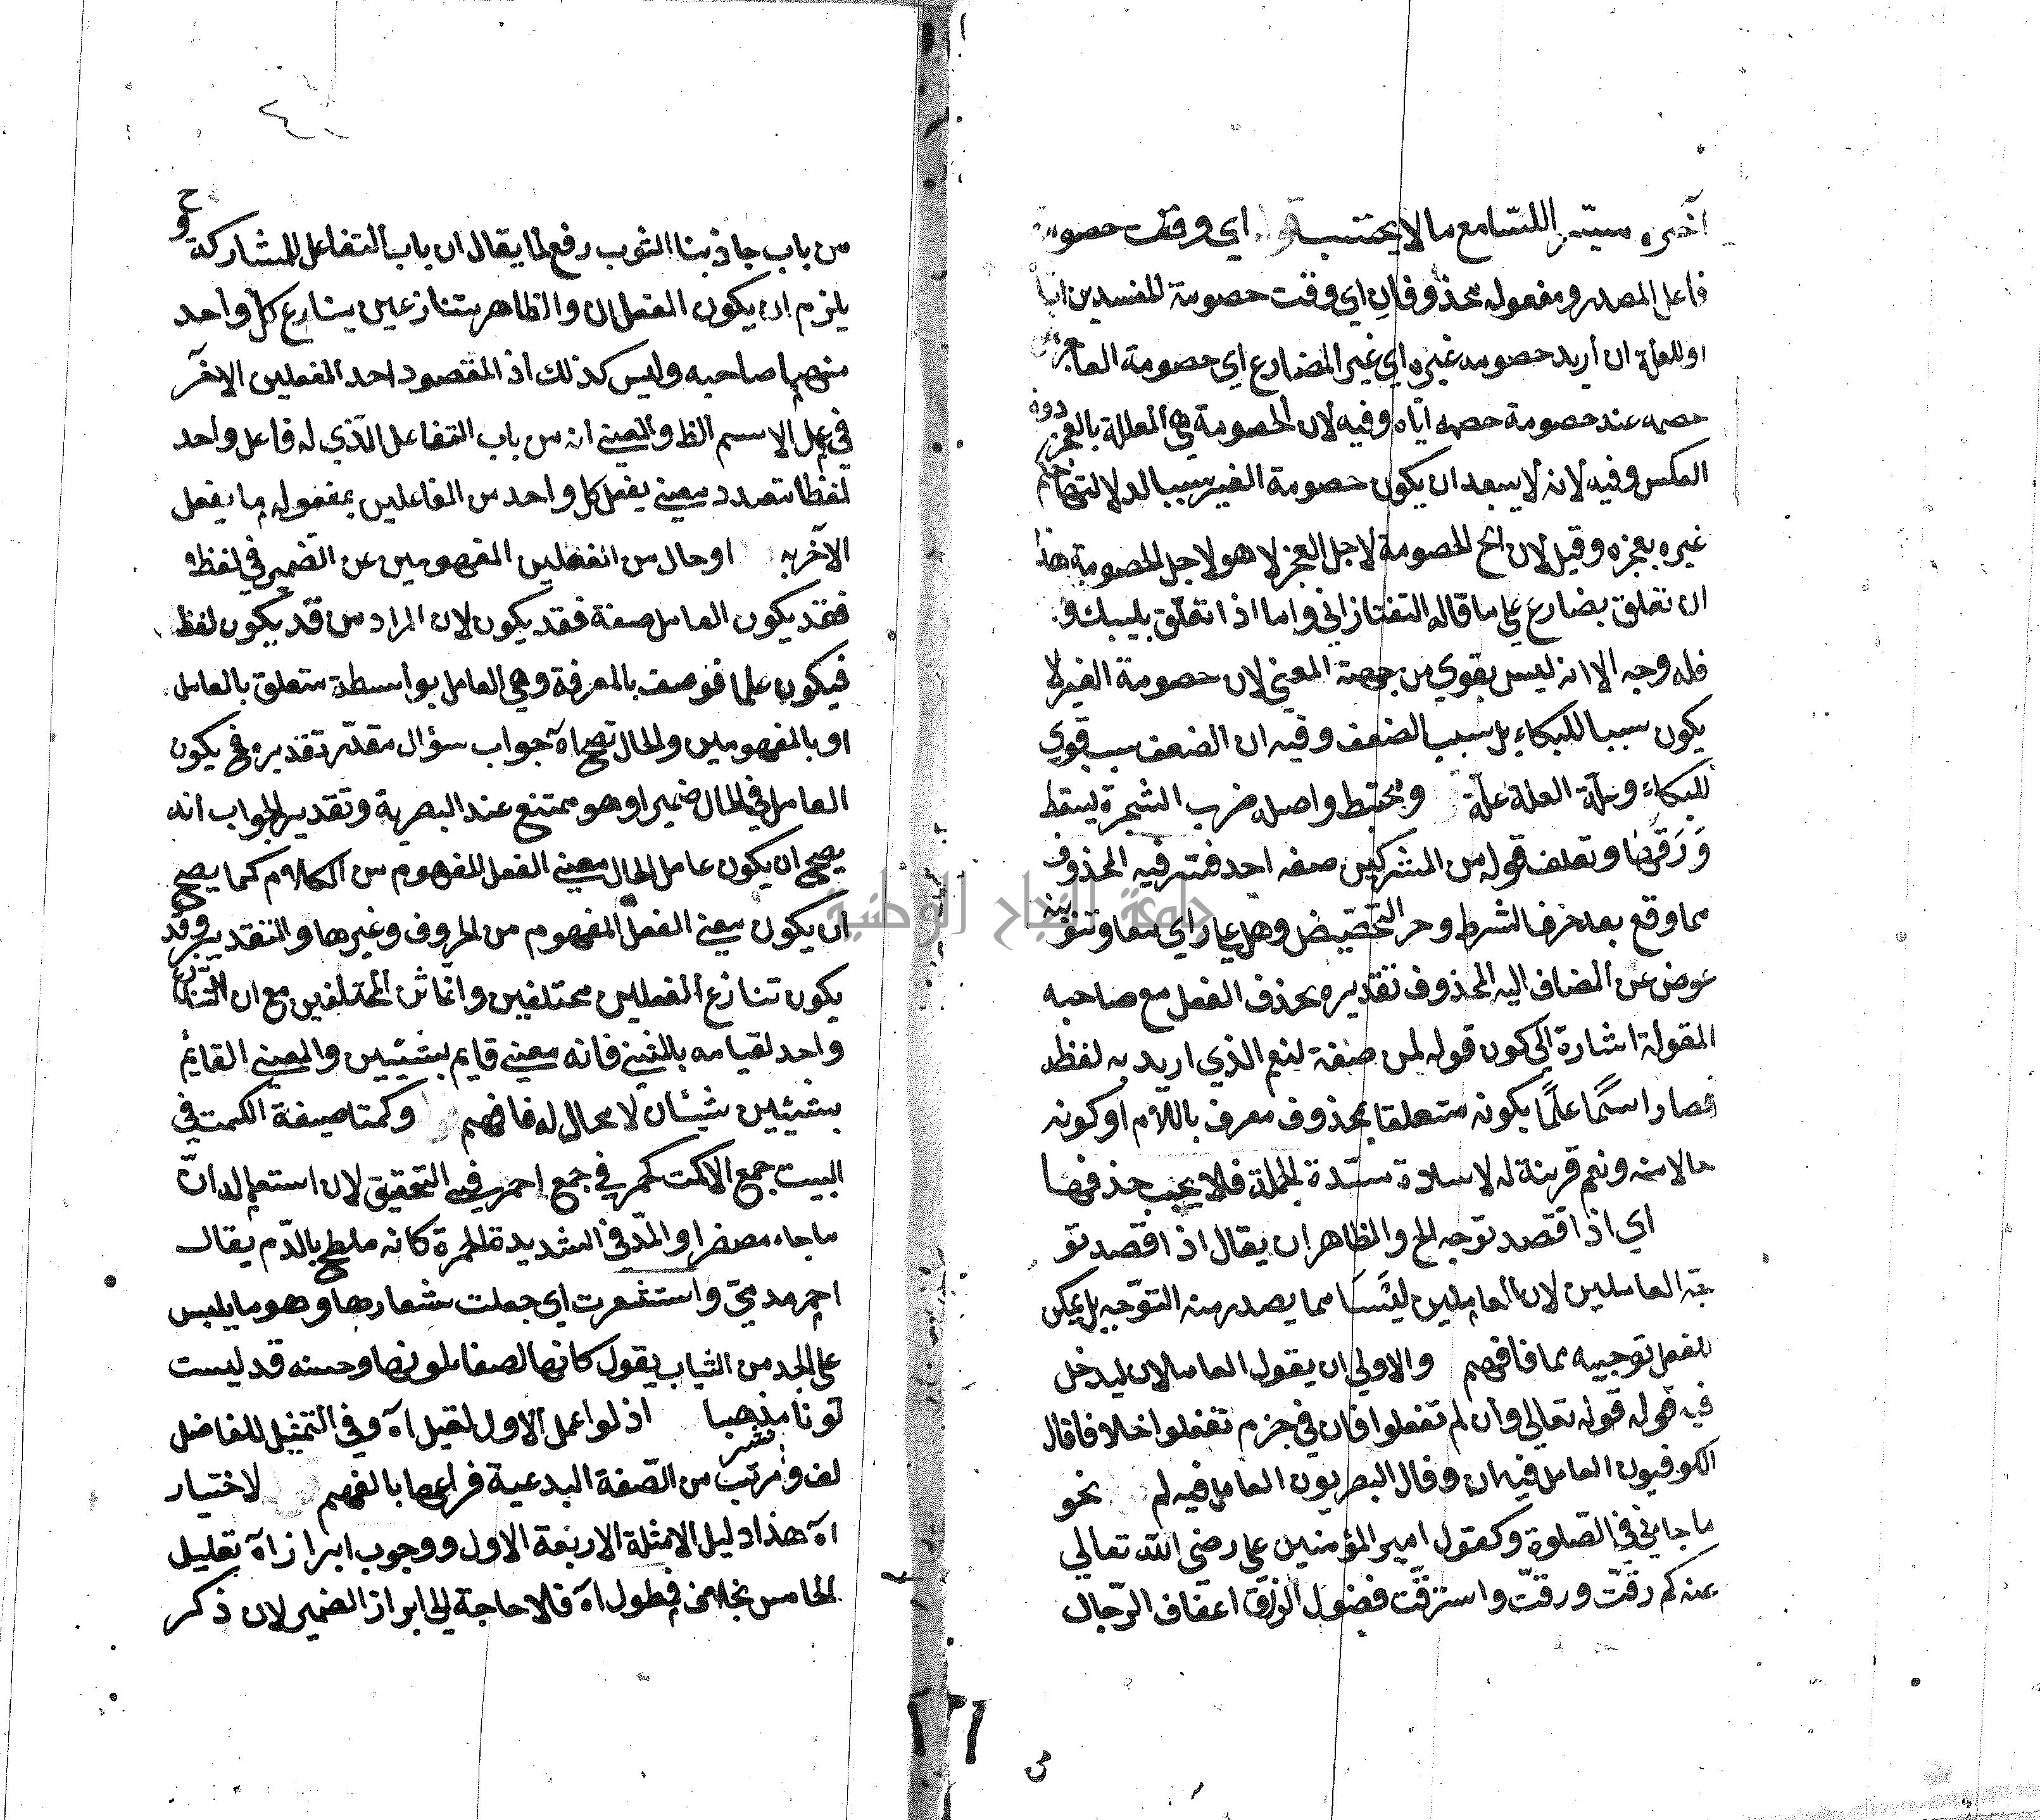 آخره ميسّر اللسّامع ما لا يحتسبه اي وقت
فاعل المصدر ومفعوله محذوفان اي وقت خصومة المفسدين
او للعلة ان اريد خصومه غيره اي غير المضارع اي خصومة العاجز
خصمه عند خصومة خصمه اياه وفيه لان الخصومة هي المعللة بالعجز دون
العكس وفيه لانه لا يبعد ان يكون خصومة الغير سببا لدلالتها
غيره بعجزه وقيل لان الخ الخصومة لاجل العجز لا هو لاجل الخصومة هذا
ان تعلق بضارع على ما قاله التفتازاني واما اذا تعلّق بليبك
فله وجه الا انه ليس بقوي من جهة المعنى لان خصومة الغير لا
يكون سببا للبكاء بل سبب الضعف وفيه ان الضعف سبب قوي
للبكاء وعلّة العلة علّة ومختبط واصله ضرب الشجرة ليسقط
وَرَقها وتعلف قوله من المشركين صفه احد فسّر فيه المحذوف
مما وقع بعد حرف الشرط وحر التحضيض وهل معا اي معا وتنوينه
عوض عن المضاف اليه المحذوف تقديره بحذف الفعل مع صاحبه
المقولة اشارة الى كون قوله لمن صفة لنعم الذي اريد به لفظه
فصار اسمًا علمًا بكونه متعلقا بمحذوف معرف باللام او كونه
حالا منه ونعم قرينة له لا سادة مسّدة الجملة فلا يجب حذفها
اي اذا قصد توجه الخ والظاهر ان يقال اذا قصد تو
جّه العاملين لان العاملين ليسَا مما يصدر منه التوجّه بل يمكن
للفعل توجيهه بما فافهم والاولى ان يقول العاملان ليدخل
فيه قوله قوله تعالى وان لم تفعلوا فان في جزم تفعلوا خلافا قال
الكوفيون العامل فيه ان وقال البصريون العامل فيه لم نحو
ما جاء في الصّلوة وكقول امير المؤمنين على رضى الله تعالى
عنه كم رقّت ورقّت واسترقّت فضول الرزق اعناق الرّجال
من باب جاذبنا الثوب رفع لما يقال ان باب التفاعل للمشاركة وح
يلزم ان يكون الفعلان والظاهر متنازعين ينازع كلّ واحد
منهما صاحبه وليس كذلك اذ المقصود احد الفعلين الآخر
في عمل الاسم الظ والمعنى انه من باب التفاعل الّذي له فاعل واحد
لفظا متعدد معنى يفعل كل واحد من الفاعلين بمفعوله ما يفعل
الآخر به او حال من الفعلين المفهومين عن الضمير في لفظه
فقد يكون العامل صفة فقد يكون لان المراد من قد يكون لفظ
فيكون علما فوصف بالمعرفة وهي العامل بواسطة متعلق بالعامل
او بالمفهومين والحال تصح اه جواب سؤال مقدّر تقديره فح يكون
العامل في الحال ضميرا وهو ممتنع عند البصرية وتقدير الجواب انه
يصح ان يكون عامل الحال معنى الفعل المفهوم من الكلام كما يصح
ان يكون معنى الفعل المفهوم من الحروف وغيرها والتقدير وقد
يكون تنازع الفعلين مختلفين وانما ثنى المختلفين مع ان التنازع
واحد لقيامه بالمثنى فانه معنى قايم بشيئين والمعنى القايم
بشيئين شيئان لا محال له فافهم وكمتا صيغة الكمت في
البيت جمع الاكمت كحمر في جمع احمر في التحقيق لان استعماله ان
ما جاء مصغرا والمدّ في الشديدة الحمرة كانه ملطخ بالدّم يقال
احمر مدمّى واستشعرت اي جعلت شعارها وهو ما يلبس
على الجد من الثياب يقول كانها لصفا لونها وحسنه قد ليست
لونا مذهبا اذ لو اعمل الاول لقيل اه وفي التمثيل للفاضل
لف ونشر مرتب من الصّفة البدعية فراعها بالفهم لاختيار
اه هذا دليل الامثلة الاربعة الاول ووجوب ابراز اه تعليل
الخامس بخلاف مطول اه فلا حاجة الى ابراز الضمير لان ذكر
جامعة النجاح الوطنية